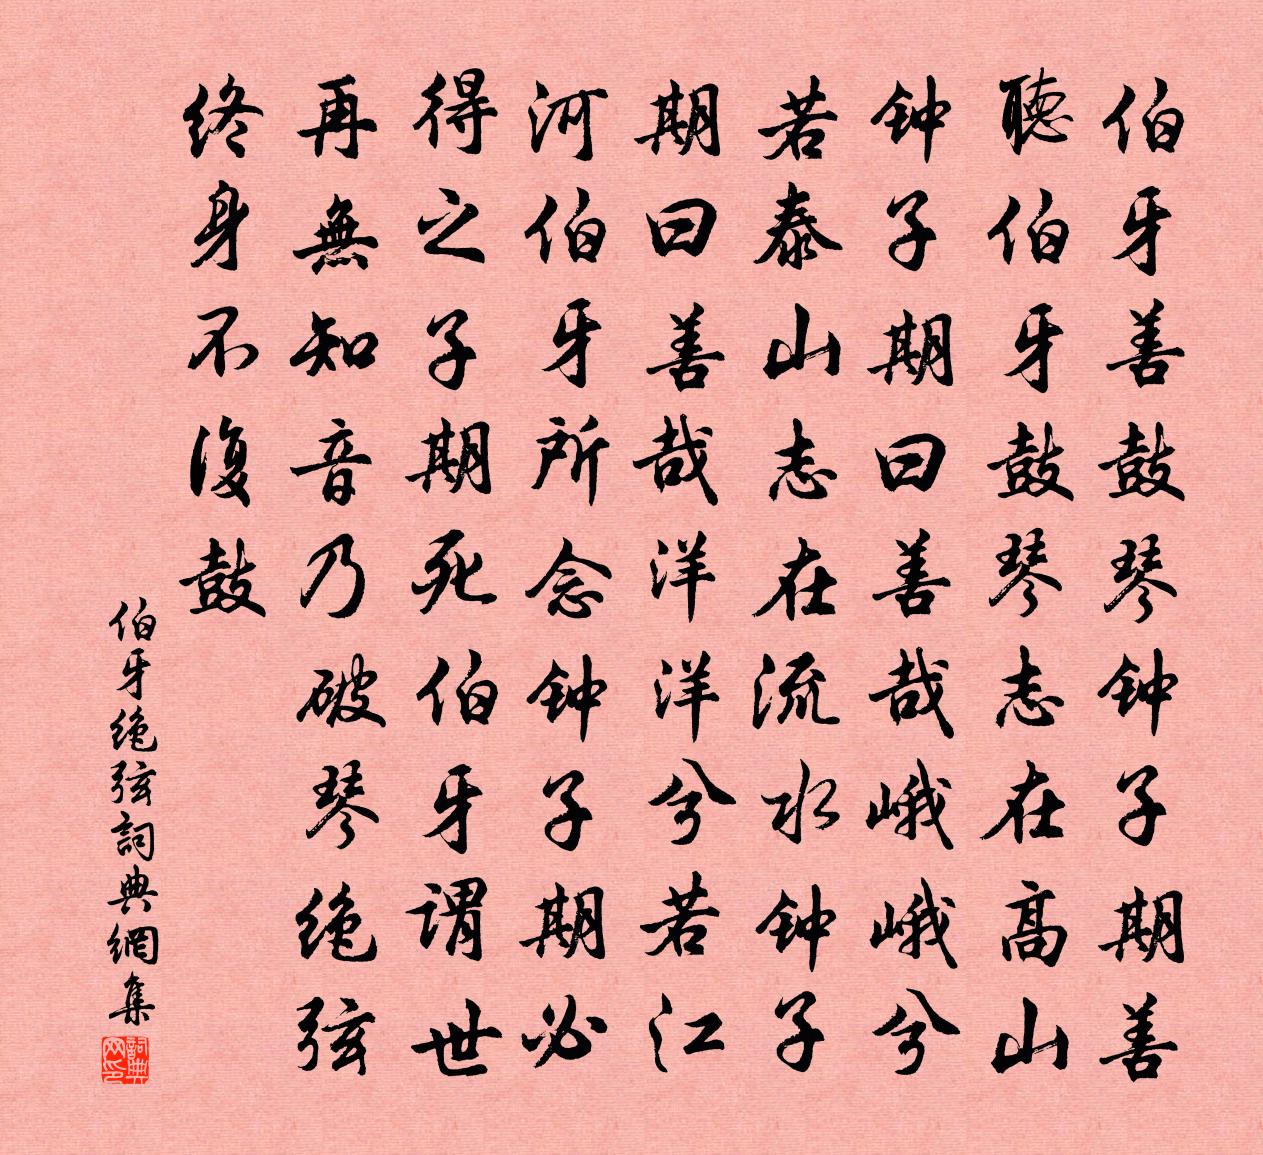 伯牙善鼓琴钟子期善
聽伯牙鼓琴志在高山
钟子期曰善哉峨峨兮
若泰山志在流水钟子
期曰善哉洋洋兮若江
河伯牙所念钟子期必
得之子期死伯牙谓世
再無知音乃破琴绝弦
终身不復鼓
伯牙绝弦詞典網集
詞典网印